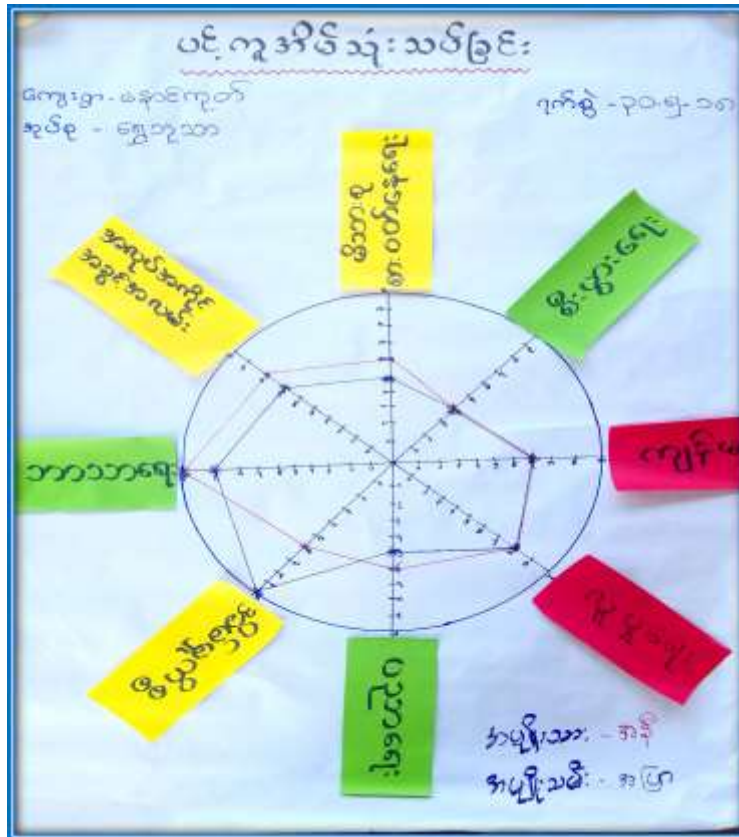 ပင့်ကူအိမ်သုံးသပ်ခြင်း
ကျေးရွာ - နောင်ကုတ်
အုပ်စု - ရွှေဘုသာ
ရက်စွဲ - ၃၀-၅-၁၈
မိသားစု
စားဝတ်နေရေး
စီးပွားရေး
ကျန်းမာ
ပညာရေး
ဘာသာရေး
အလုပ်အကိုင်
အခွင့်အလမ်း
အမျိုးသား - အနီ
အမျိုးသမီး - အပြာ